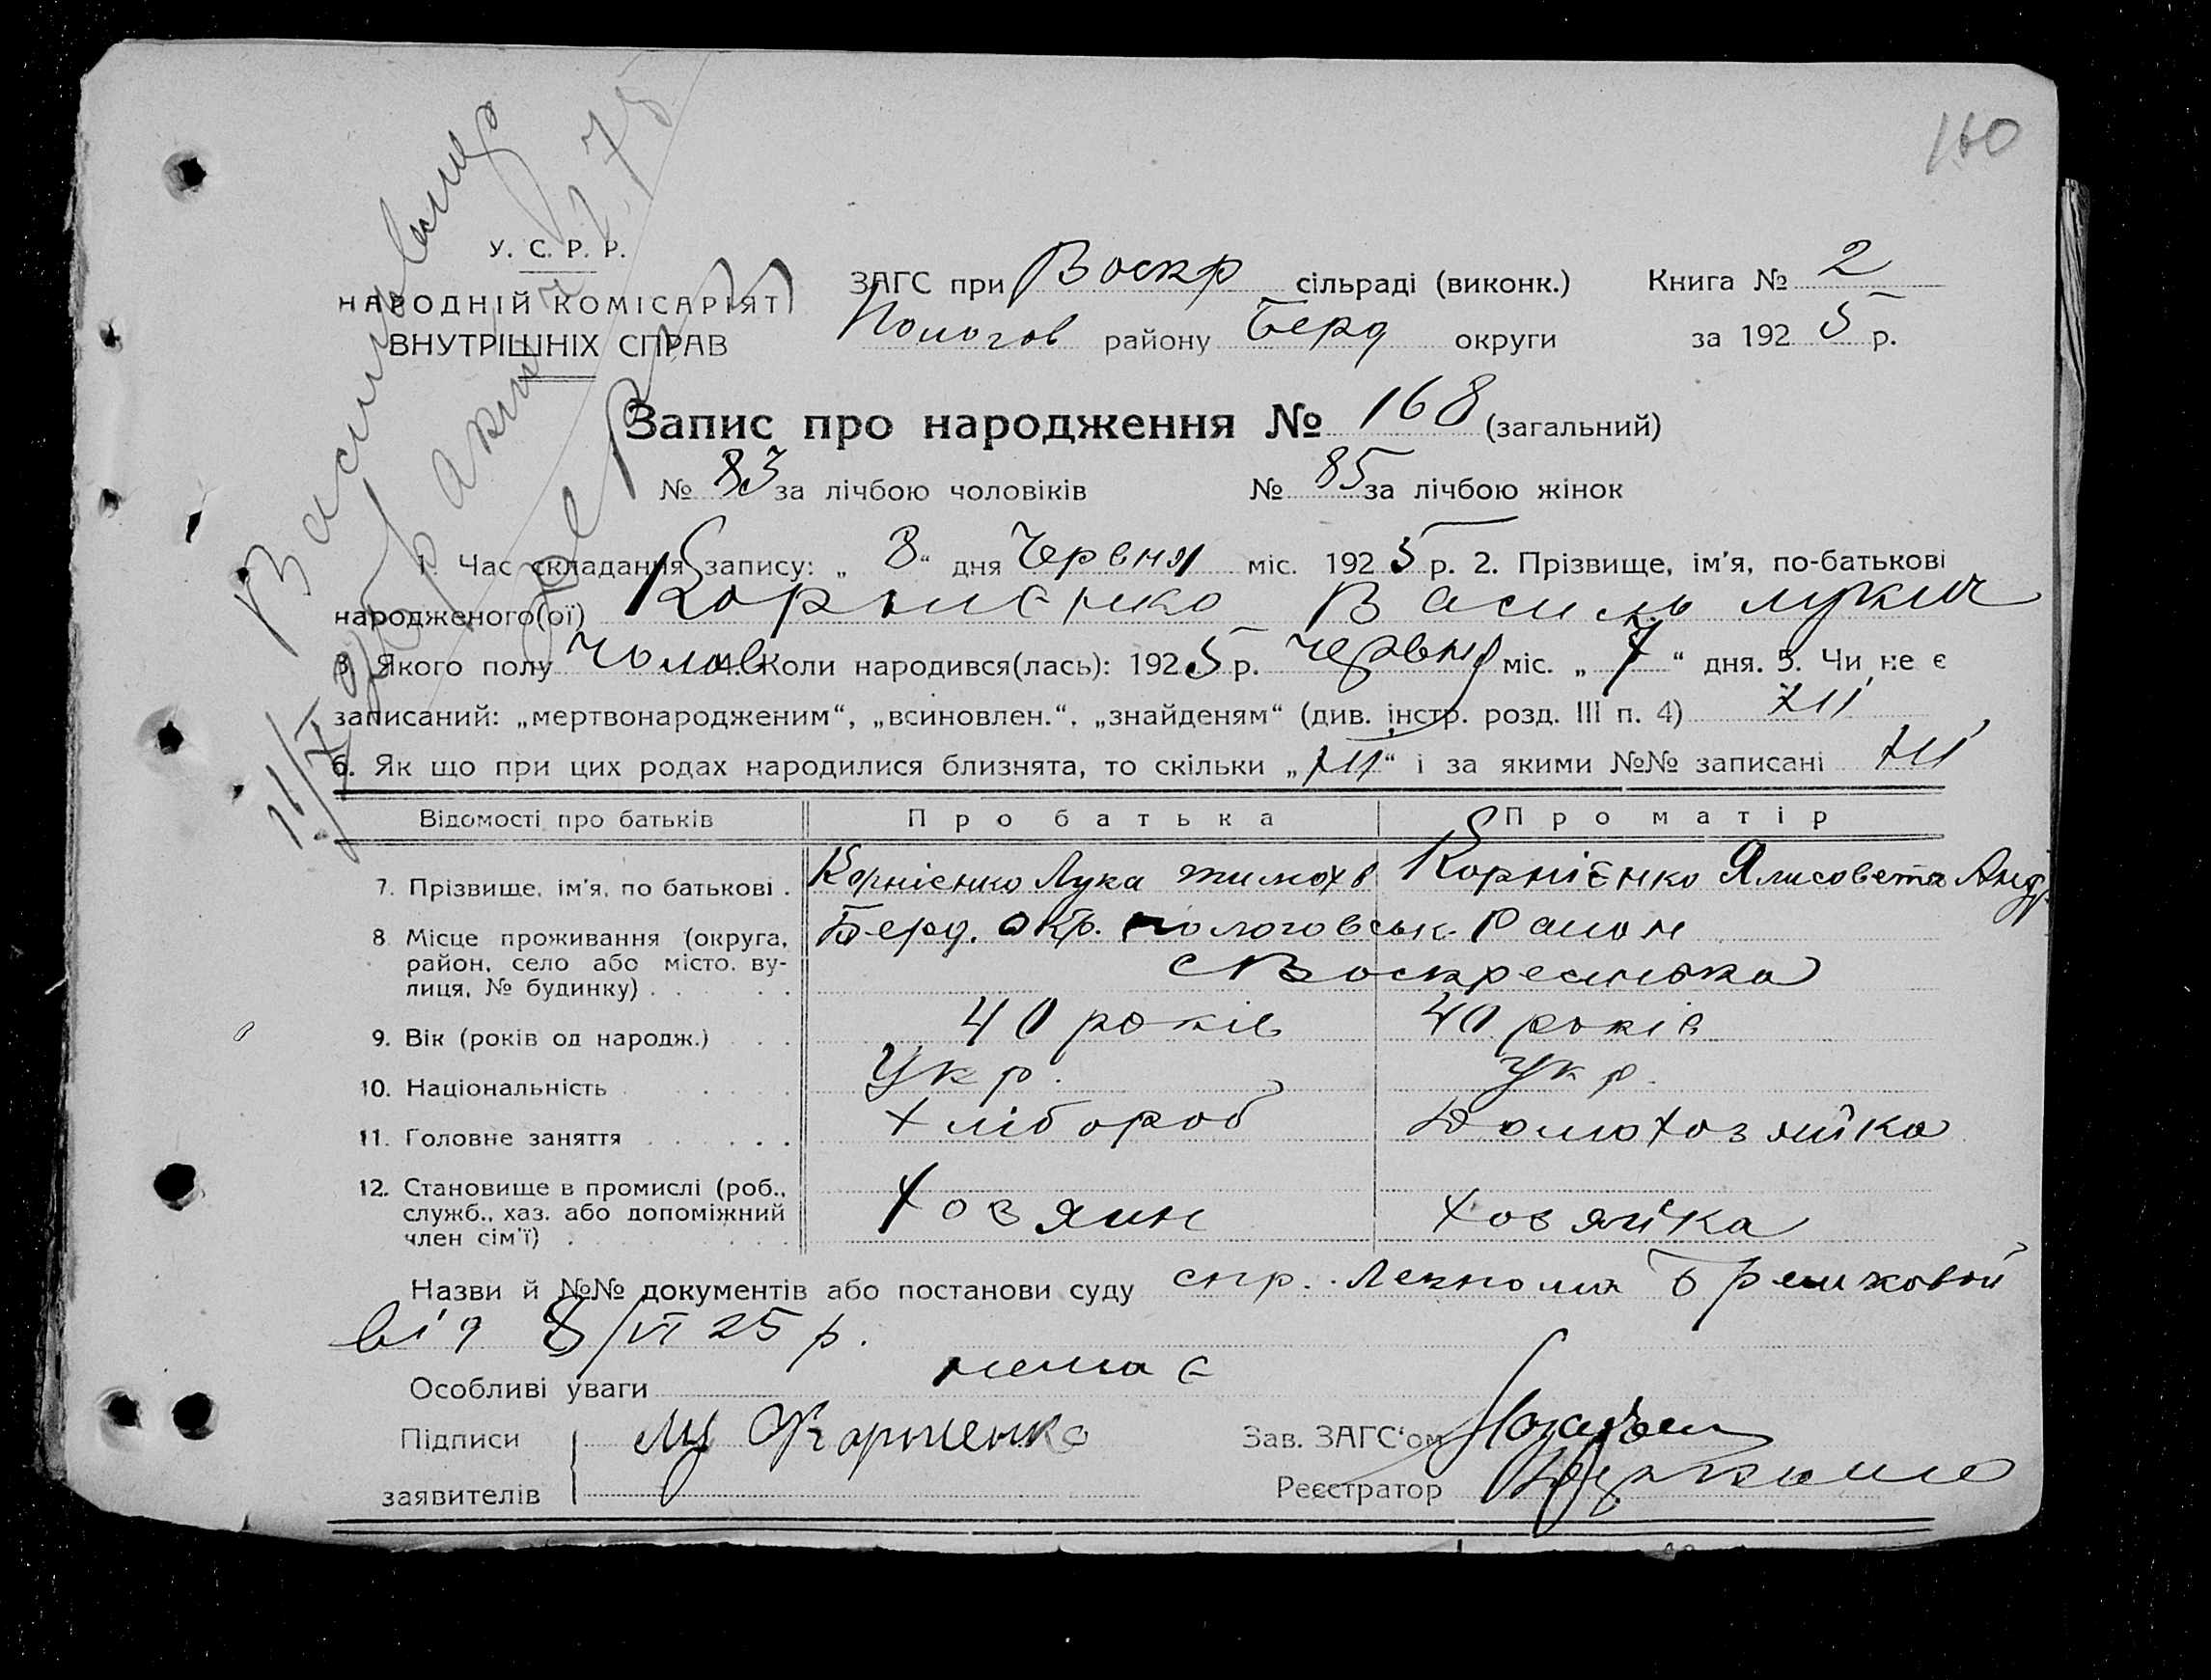 110
У. С. Р. Р.
НАРОДНІЙ КОМІСАРІЯТ
ВНУТРІШНІХ СПРАВ
ЗАГС при Воскр сільраді (виконк.) Книга № 2
Пологов району Берд округи за 1925 р.
Запис про народження № 168 (загальний)
№ 83 за лічбою чоловіків № 85 за лічбою жінок
1. Час складання запису: „8“ дня Червня міс. 1925 р. 2. Прізвище, ім'я, по-батькові
народженого(ої) Корнієнко Василь Лукич
3. Якого полу Чолов 4. Коли народився(лась): 1925 р. червня міс. „7“ дня. 5. Чи не є
записаний: „мертвонародженим“, „всиновлен.“, „знайденям“ (див. інстр. розд. III п. 4) ні
6. Як що при цих родах народилися близнята, то скільки „ні“ і за якими №№ записані ні
Відомості про батьків Про батька Про матір
7. Прізвище, ім'я, по батькові . Корнієнко Лука Тимохв Корнієнко Ялисовета Андр
8. Місце проживання (округа, район, село або місто, вулиця, № будинку) . . . Берд. окр. пологовськ. Район
с Воскресенька
9. Вік (років од народж.) . . . 40 років 40 років
10. Національність . . . . . Укр. Укр.
11. Головне заняття . . . . . Хлібороб Домохозяйка
12. Становище в промислі (роб., служб., хаз. або допоміжний член сім'ї) . . . Хозяин Хозяйка
Назви й №№ документів або постанови суду спр. Лекпома Брешковой
від 8/VI 25 р.
Особливі уваги немає
Підписи Корниенко Зав. ЗАГС'ом
заявителів Реєстратор